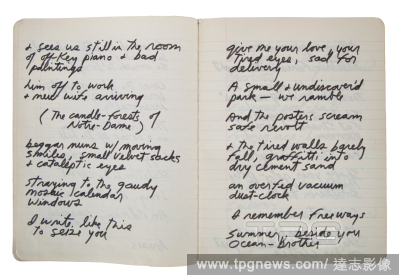 & sees us still in the room
of off-key piano & bad
paintings
him off to work
& new wife arriving
(The candle-forests of
Notre-Dame)
beggar nuns w/moving
smiles, small velvet sacks
& cataleptic eyes
straying to the gaudy
mosaic calendar
windows
I write like this
to seize you
give me your love, your
tired eyes, sad for
delivery
A small & undiscover'd
park — we ramble
And the posters scream
safe revolt
& the tired walls barely
fall, graffiti into
dry cement sand
an overfed vacuum
dust-clock
I remember freeways
Summer, beside you
Ocean - brother
www.tpgnews.com/ 達志影像